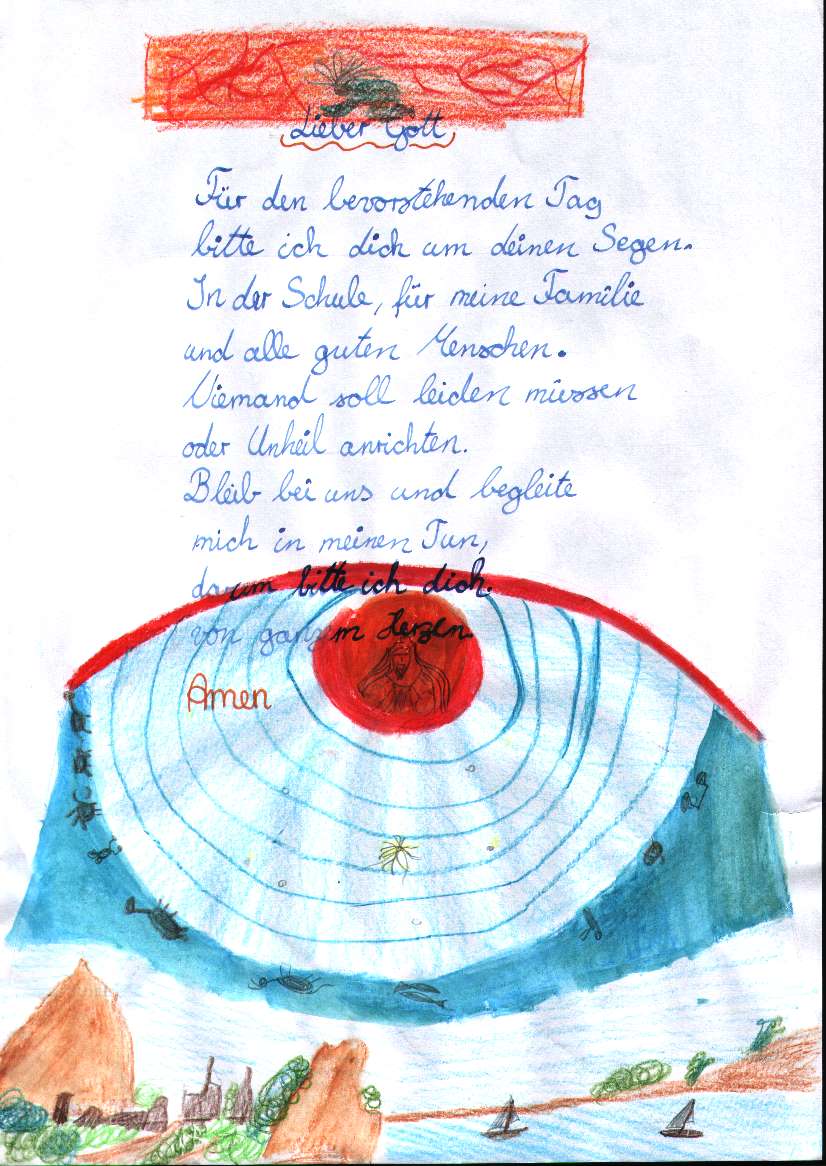 Lieber Gott
Für den bevorstehenden Tag
bitte ich dich um deinen Segen.
In der Schule, für meine Familie
und alle guten Menschen.
Niemand soll leiden müssen
oder Unheil anrichten.
Bleib bei uns und begleite
mich in meinen Tun,
darum bitte ich dich.
von ganzem Herzen.
Amen